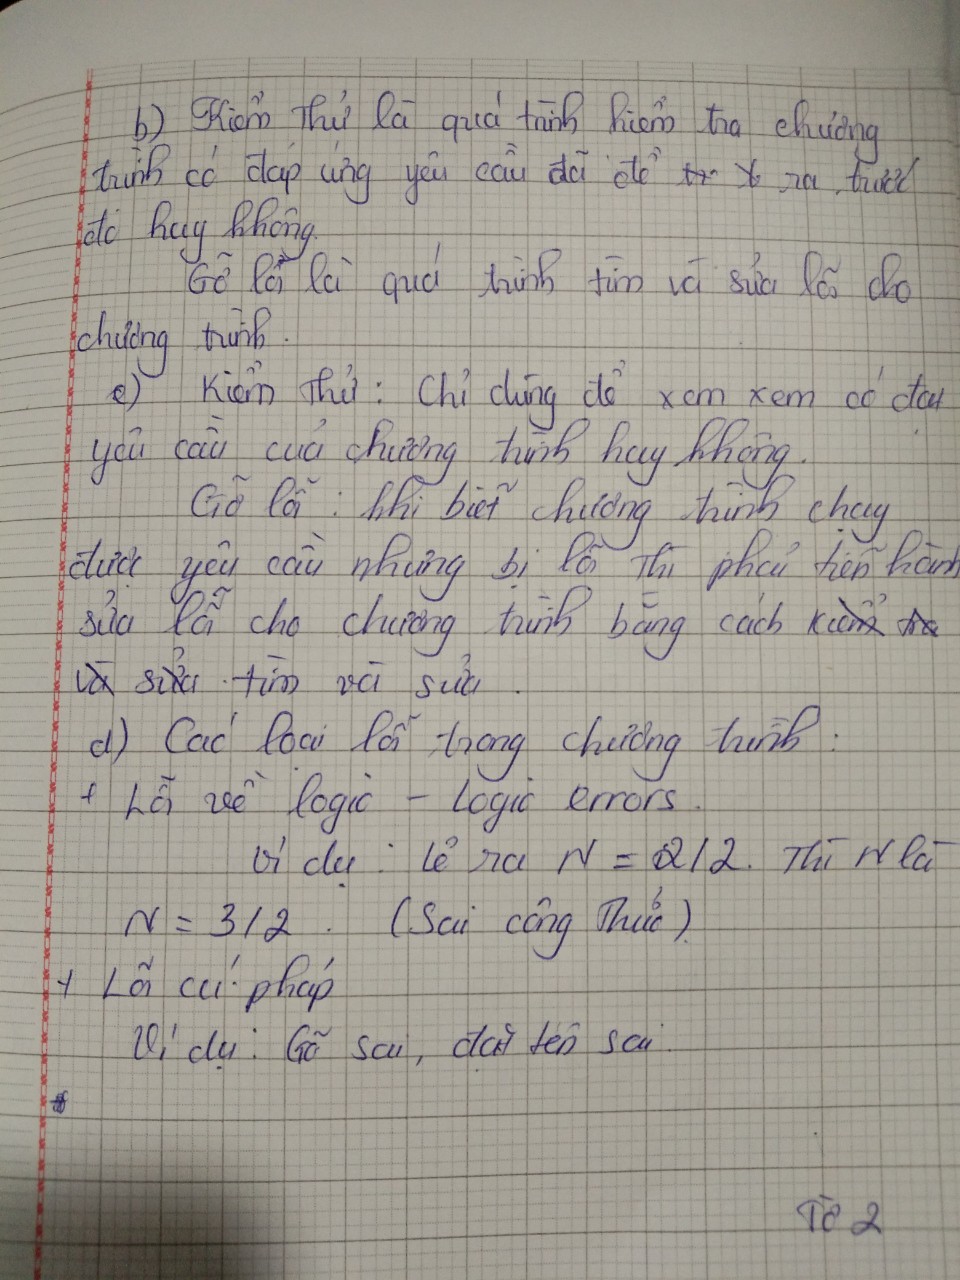 b) Kiểm thử là quá trình kiểm tra chương
trình có đáp ứng yêu cầu đã đề ra trước
đó hay không.
Gỡ lỗi là quá trình tìm và sửa lỗi cho
chương trình.
c) Kiểm thử: Chỉ dùng để xem xem có đạt
yêu cầu của chương trình hay không.
Gỡ lỗi: khi biết chương trình chạy
được yêu cầu nhưng bị lỗi thì phải tiến hành
sửa lỗi cho chương trình bằng cách kiểm tra
và sửa tìm và sửa.
d) Các loại lỗi trong chương trình:
+ Lỗi về logic - Logic errors.
Ví dụ: Lẽ ra N = 2/2. Thì N là
N = 3/2. (Sai công thức)
+ Lỗi cú pháp
Ví dụ: Gõ sai, đặt tên sai.
Tờ 2